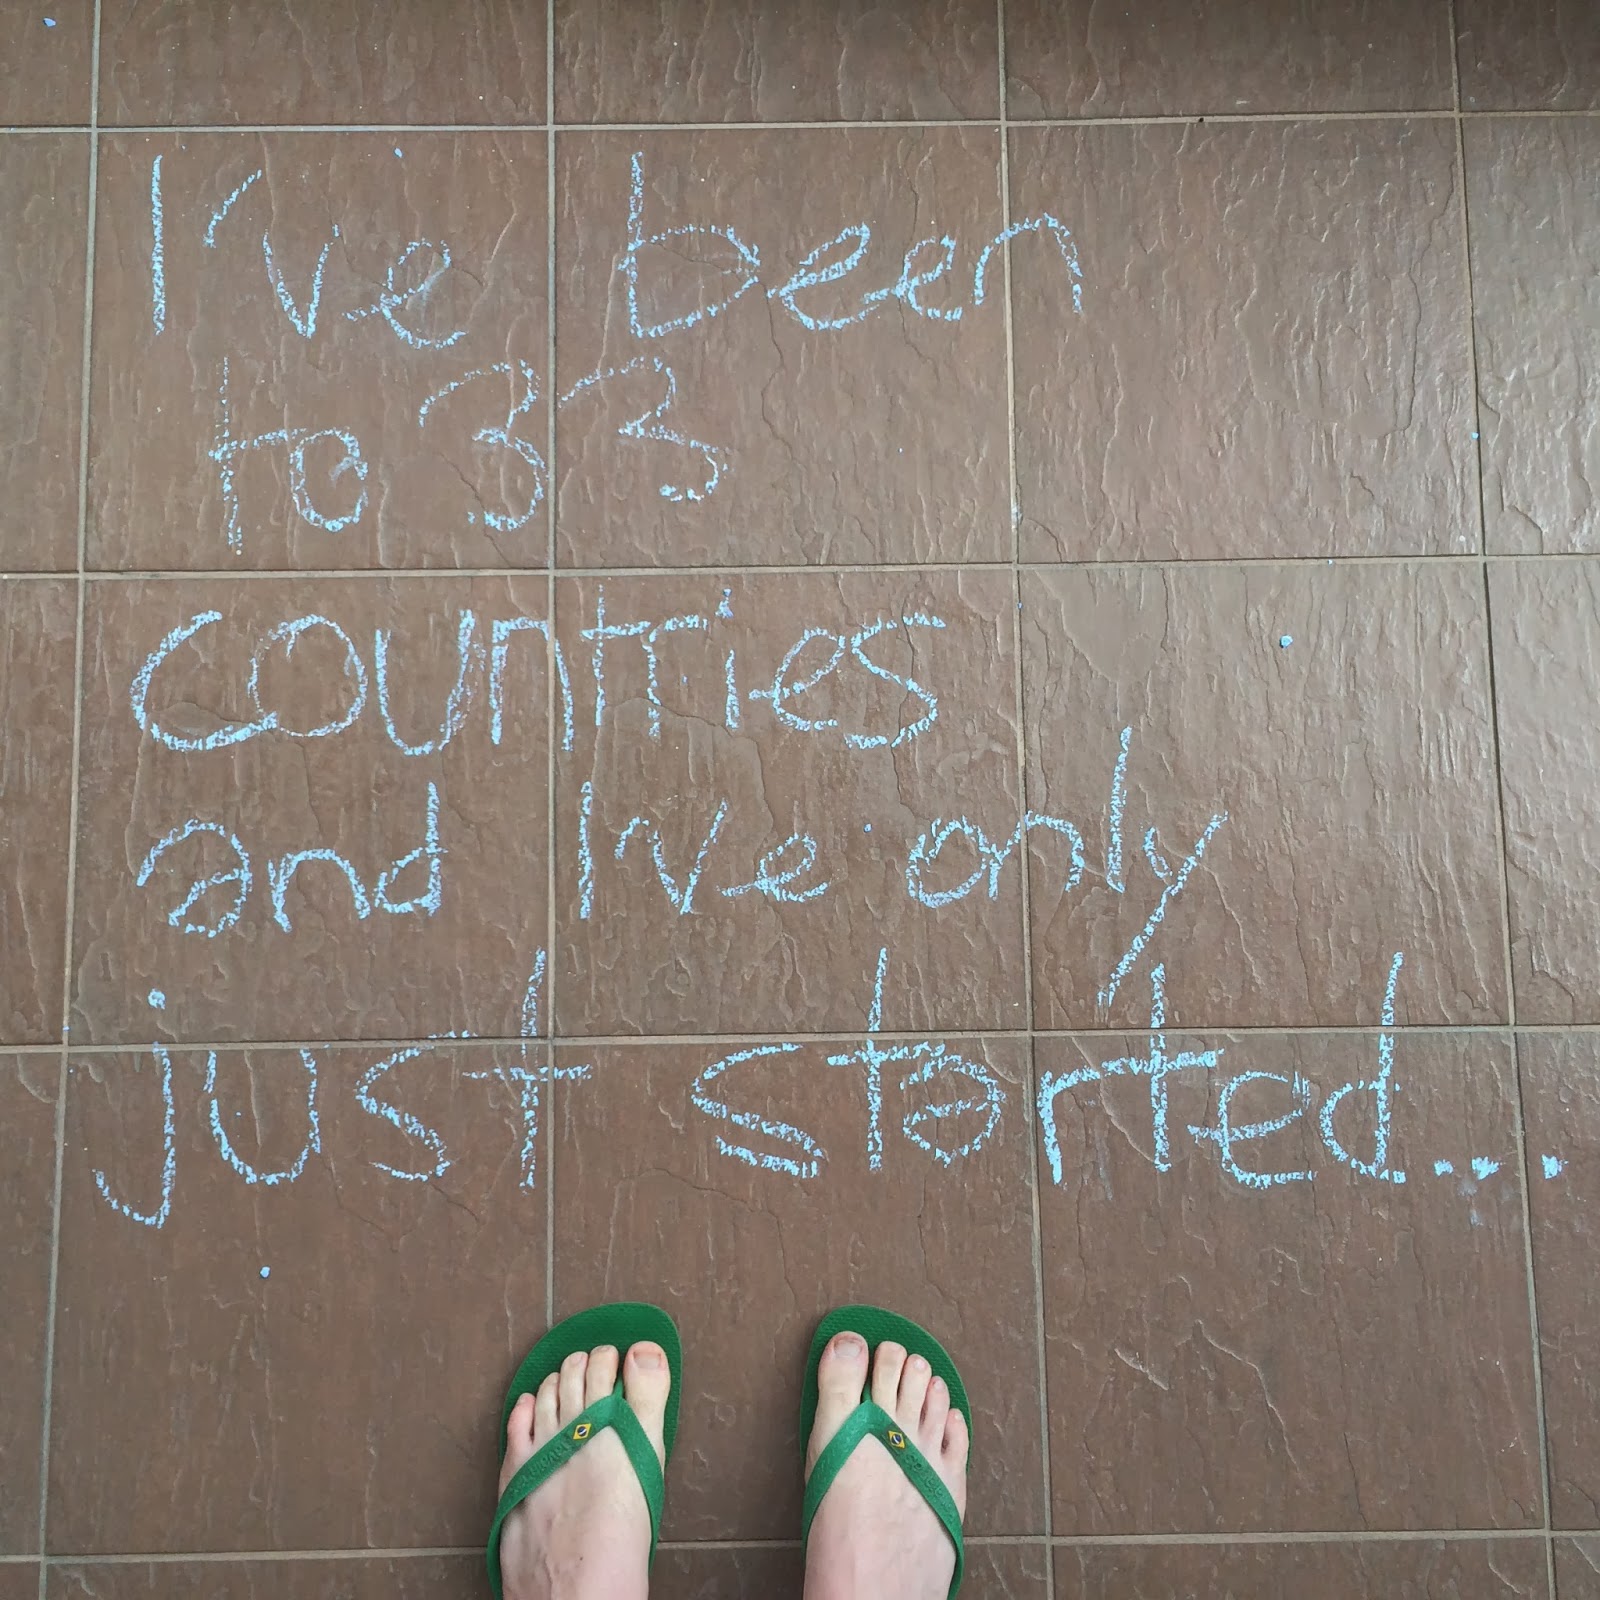 I've been
to 33
countries
and I've only
just started...